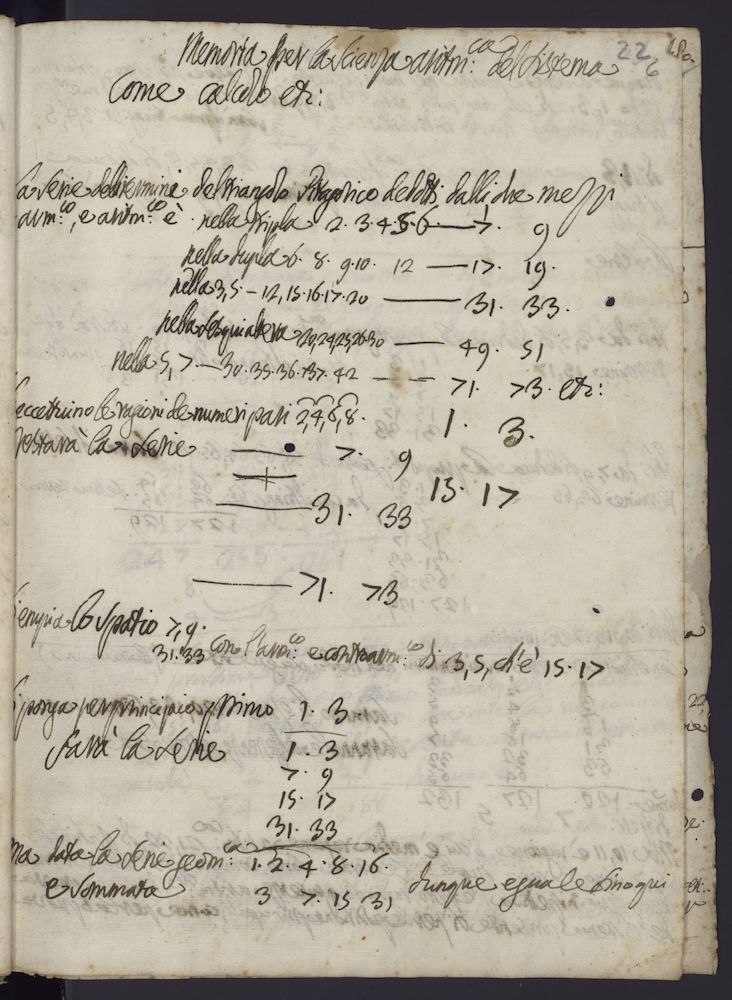 22 180
6
Memoria per la scienza aritm:ca del sistema
Come calcolo etc:
la serie delli termini del triangolo Pitagorico dedotti dalli due mezzi
arm:co, e aritm:co è nella tripla 2. 3. 4. 5. 6 — 7. 9
nella dupla 6. 8. 9. 10. 12 — 17. 19.
nella 3, 5 — 12, 15. 16. 17. 20 — 31. 33.
nella sesquialtera 20, 24, 25, 26. 30 — 49. 51
nella 5, 7. — 30. 35. 36. 37. 42 — — 71. 73. etc:
eccettuino le ragioni de numeri pari 2, 4, 6, 8. 1. 3.
restarà la serie — 7. 9
15. 17
— 31. 33
— 71. 73
empia lo spatio 7, 9.
31. 33 con l'arm:co e contrarm:co di 3, 5, ch'è 15. 17
Si ponga per principio primo 1. 3
sarà la serie 1. 3
7. 9
15. 17
31. 33
ma data la serie geom:ca 1. 2. 4. 8. 16.
e sommata 3 7. 15 31 dunque eguale sino qui